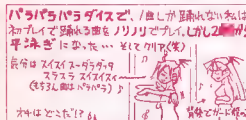 パラパラパラダイスで、1曲しか踊れない私は
初プレイで踊れる曲をノリノリでプレイ、しかし2
平泳ぎになった… そしてクリア(笑)
気分はスイスイスーダララッタ
スラスラスイスイスイ♪
(もちろん曲はパラパラ)
オチはどこだ!?
背後でガード